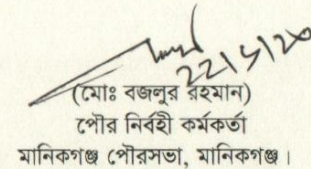 22/9/20
(মোঃ বজলুর রহমান)
পৌর নির্বহী কর্মকর্তা
মানিকগঞ্জ পৌরসভা, মানিকগঞ্জ।